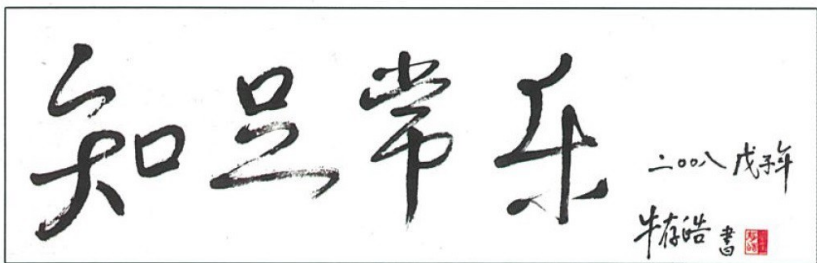 知足常乐
二〇〇八戊子年
牛存皓书